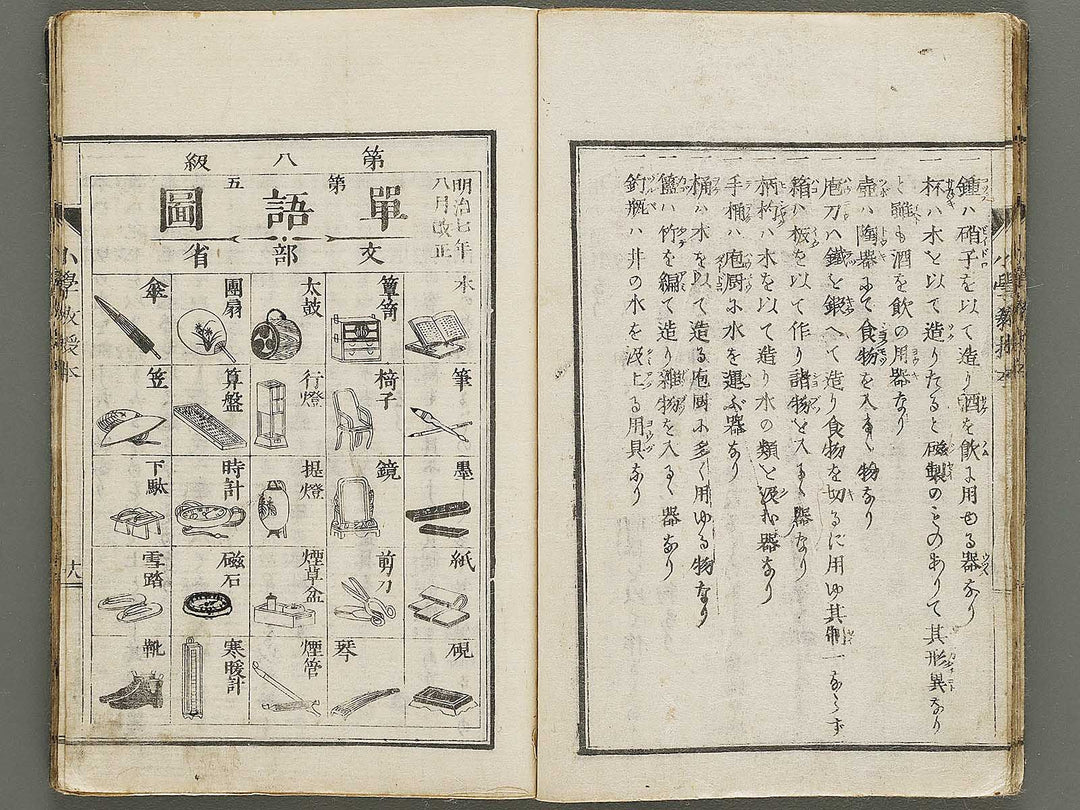 一鍾ハ硝子を以て造り酒を飲に用ゆる器なり
一杯ハ木を以て造りたると磁製のものありて其形異なり
と雖も酒を飲の用器なり
一壺ハ陶器にて食物を入るゝ物なり
一庖刀ハ鐵を鍛へて造り食物を切るに用ゆ其制一ならず
一箱ハ板を以て作り諸物を入るゝ器なり
一柄杓ハ木を以て造り水の類を汲む器なり
一手桶ハ庖厨に水を運ぶ器なり
一桶ハ木を以て造る庖厨に多く用ゆる物なり
一籃ハ竹を編て造り雑物を入るゝ器なり
一釣瓶ハ井の水を汲上る用具なり
第八級
明治七年
八月改正
第五
單語圖
文部省
本
筆
墨
紙
硯
簞笥
椅子
鏡
剪刀
琴
太鼓
行燈
提燈
煙草盆
煙管
團扇
算盤
時計
磁石
寒暖計
傘
笠
下駄
雪踏
靴
小學教授本